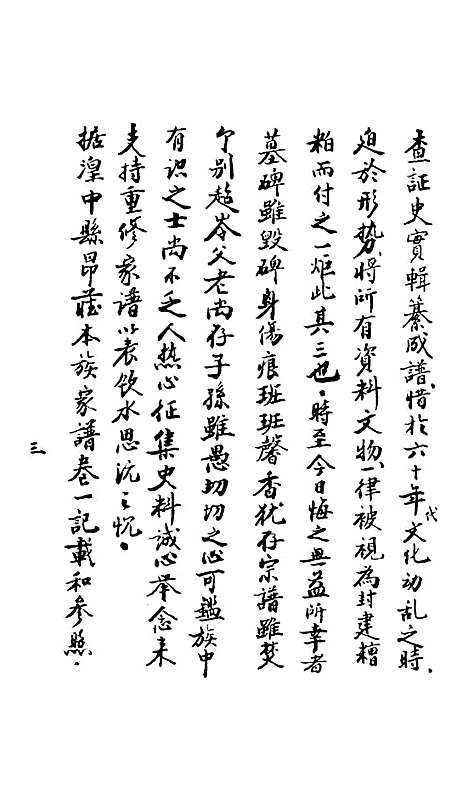 查証史實輯纂成譜、惜於六十年代文化初乱之時、
迫於形势、將所有資料文物、一律被視為封建糟
粕而付之一炬此其三也、時至今日悔之無益所幸者
墓碑雖毀碑身傷痕班班馨香犹存宗譜雖焚
个别趂岺父老尚存子孫雖愚切切之心可鑑族中
有识之士尚不乏人热心征集史料誠心举念来
支持重修家譜以表饮水思沅之忱。
据湟中縣昂藏本族家譜卷一記載和参照。
三